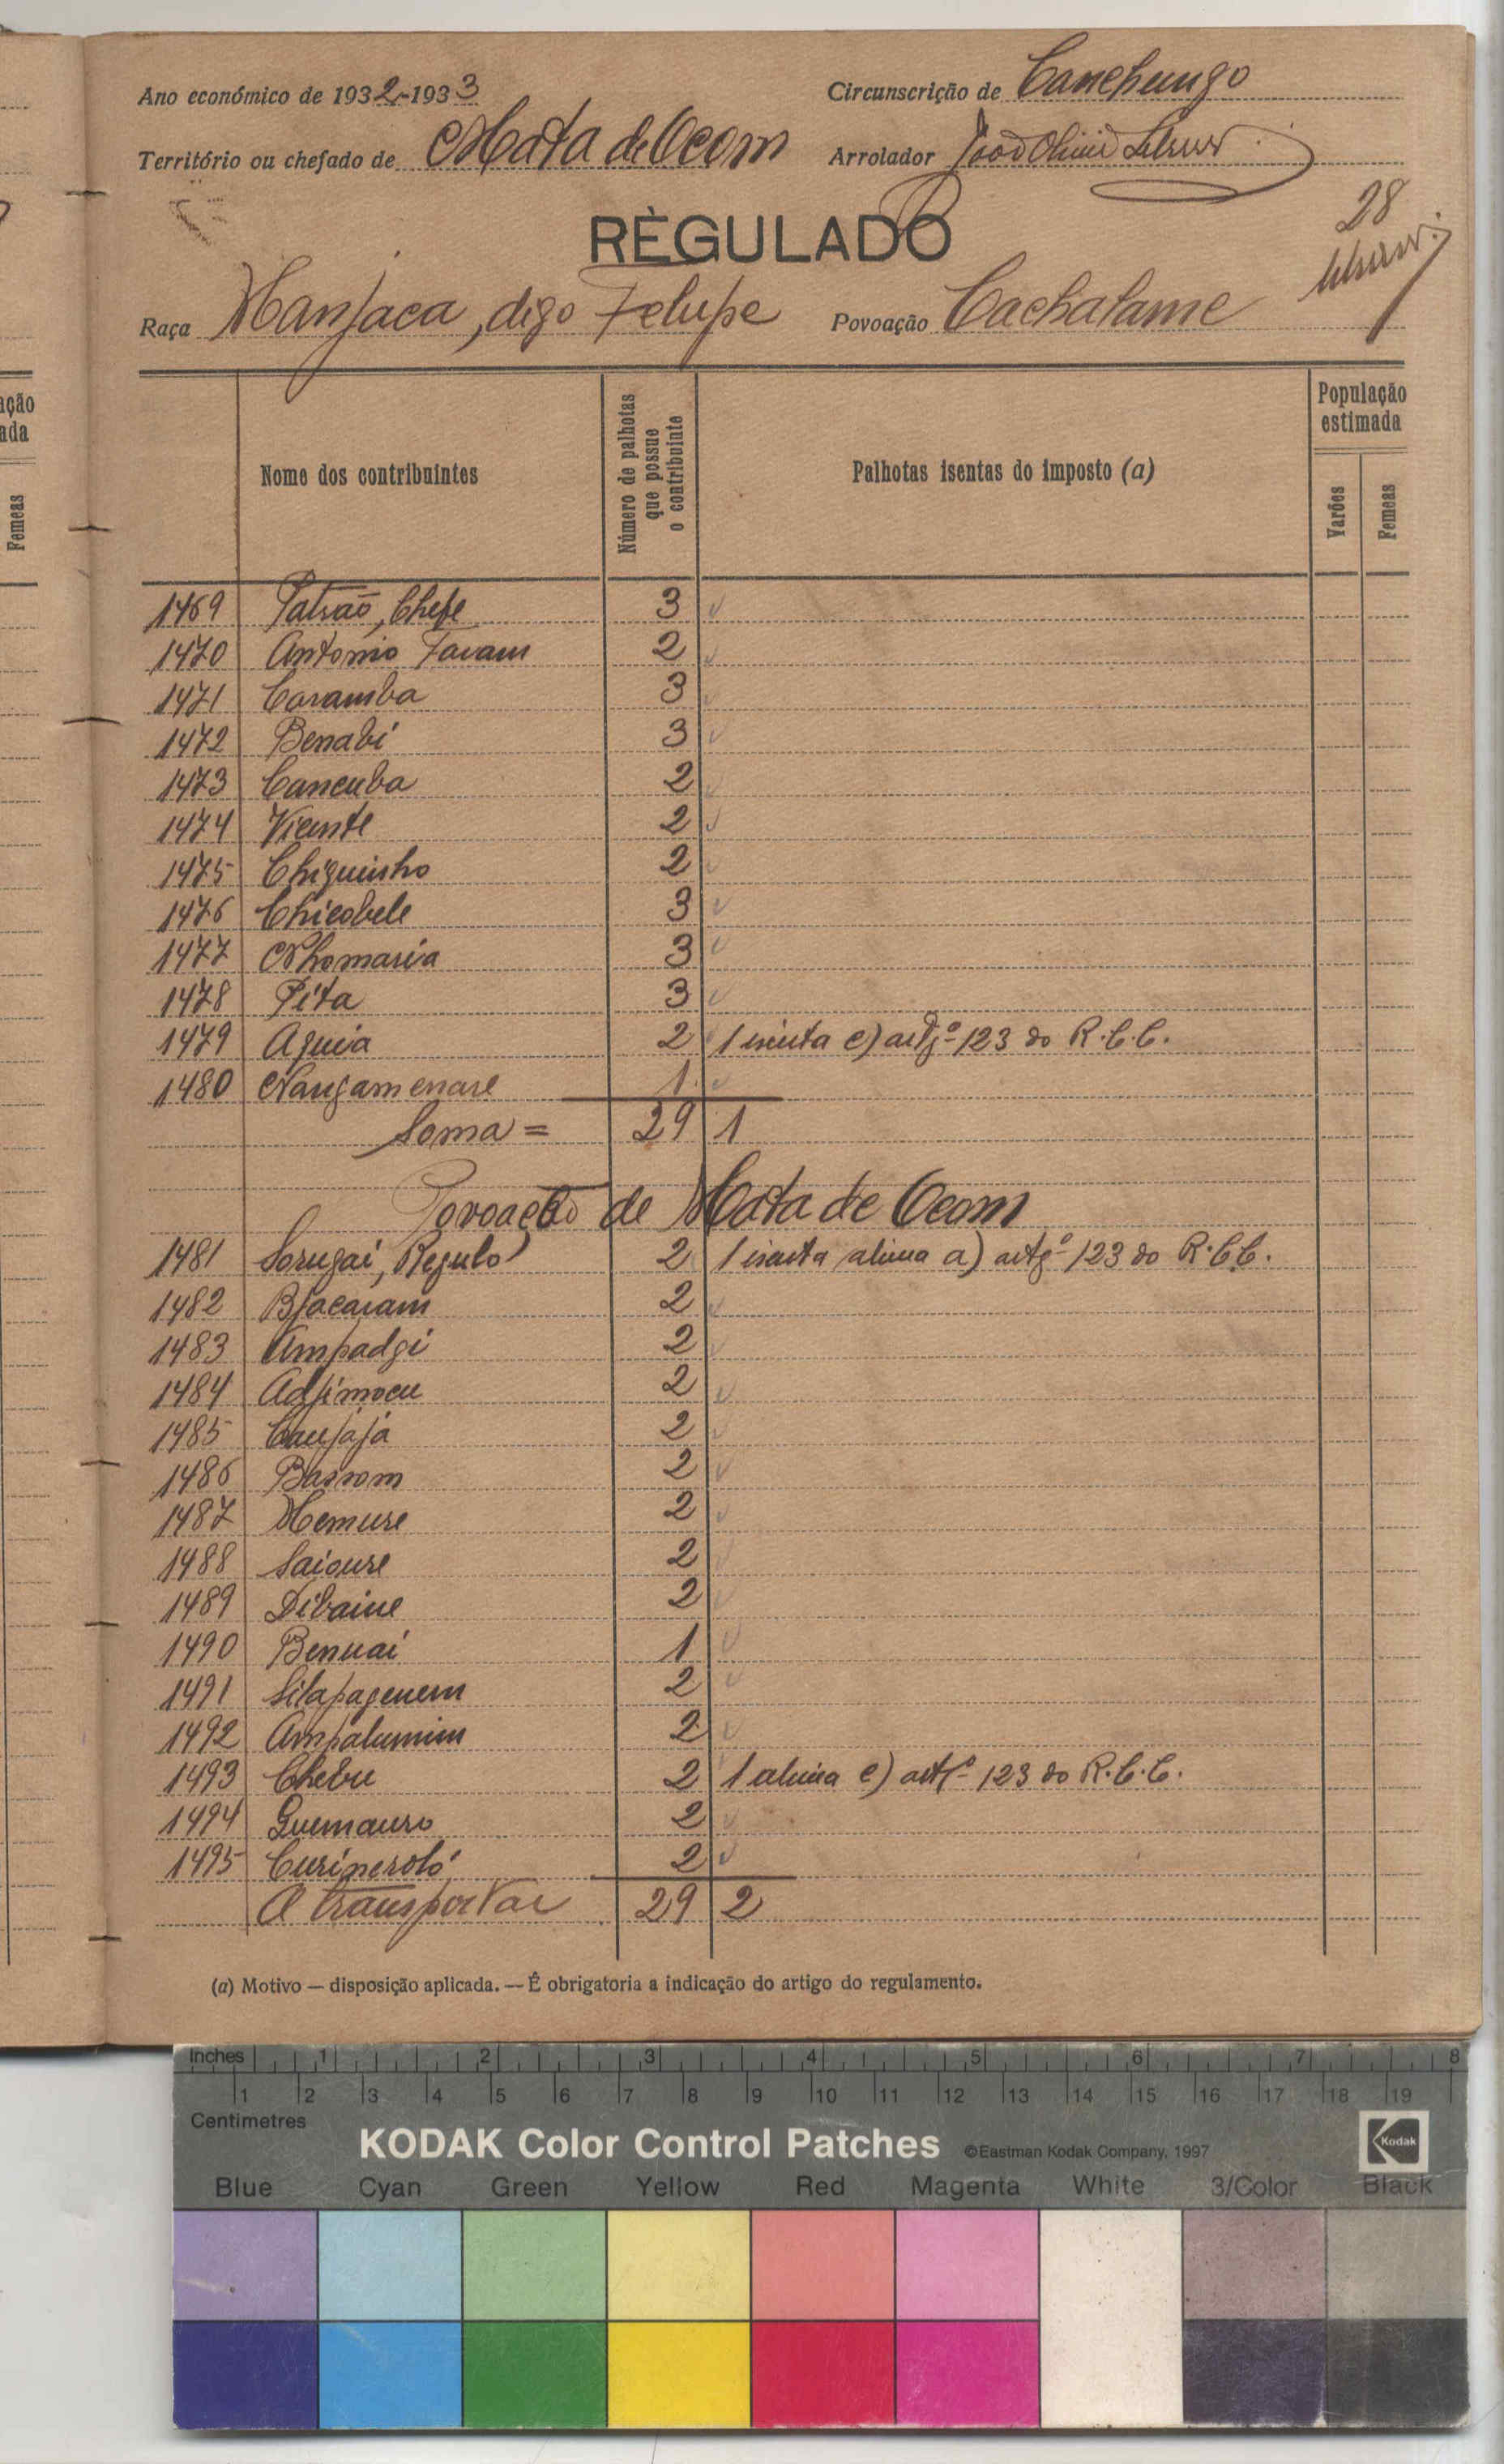 Ano económico de 1932-1933
Circunscrição de Canchungo
Território ou chefado de Mata de Ocom
Arrolador João
RÈGULADO
28
Raça Manjaca, digo Felupe
Povoação Cachalame
Nome dos contribuintes
Número de palhotas que possue o contribuinte
Palhotas isentas do imposto (a)
População estimada
Varões
Femeas
1469 Patrão, Chefe 3
1470 Antonio Favam 2
1471 Caramba 3
1472 Benabi 3
1473 Cancuba 2
1474 Vicente 2
1475 Chiquinho 2
1476 Chicobele 3
1477 Nhomaria 3
1478 Pita 3
1479 Aguia 2 1 isenta e) artgº 123 do R.C.C.
1480 Naugamenare 1
Soma = 29 1
Povoação de Mata de Ocom
1481 Sorugai, Regulo 2 1 isenta alinea a) artgº 123 do R.C.C.
1482 Bjacaram 2
1483 Ampadgi 2
1484 Adjimocu 2
1485 Caujájá 2
1486 Bassom 2
1487 Memure 2
1488 Saioure 2
1489 Dibaine 2
1490 Benuai 1
1491 Silapaguem 2
1492 Ampalumim 2
1493 Chebu 2 1 alinea e) artº 123 do R.C.C.
1494 Guemauro 2
1495 Curineroló 2
A transportar 29 2
(a) Motivo — disposição aplicada. — É obrigatoria a indicação do artigo do regulamento.
ação
ada
Femeas
Inches 1 2 3 4 5 6 7 8
1 2 3 4 5 6 7 8 9 10 11 12 13 14 15 16 17 18 19
Centimetres
KODAK Color Control Patches ©Eastman Kodak Company, 1997 Kodak
Blue Cyan Green Yellow Red Magenta White 3/Color Black